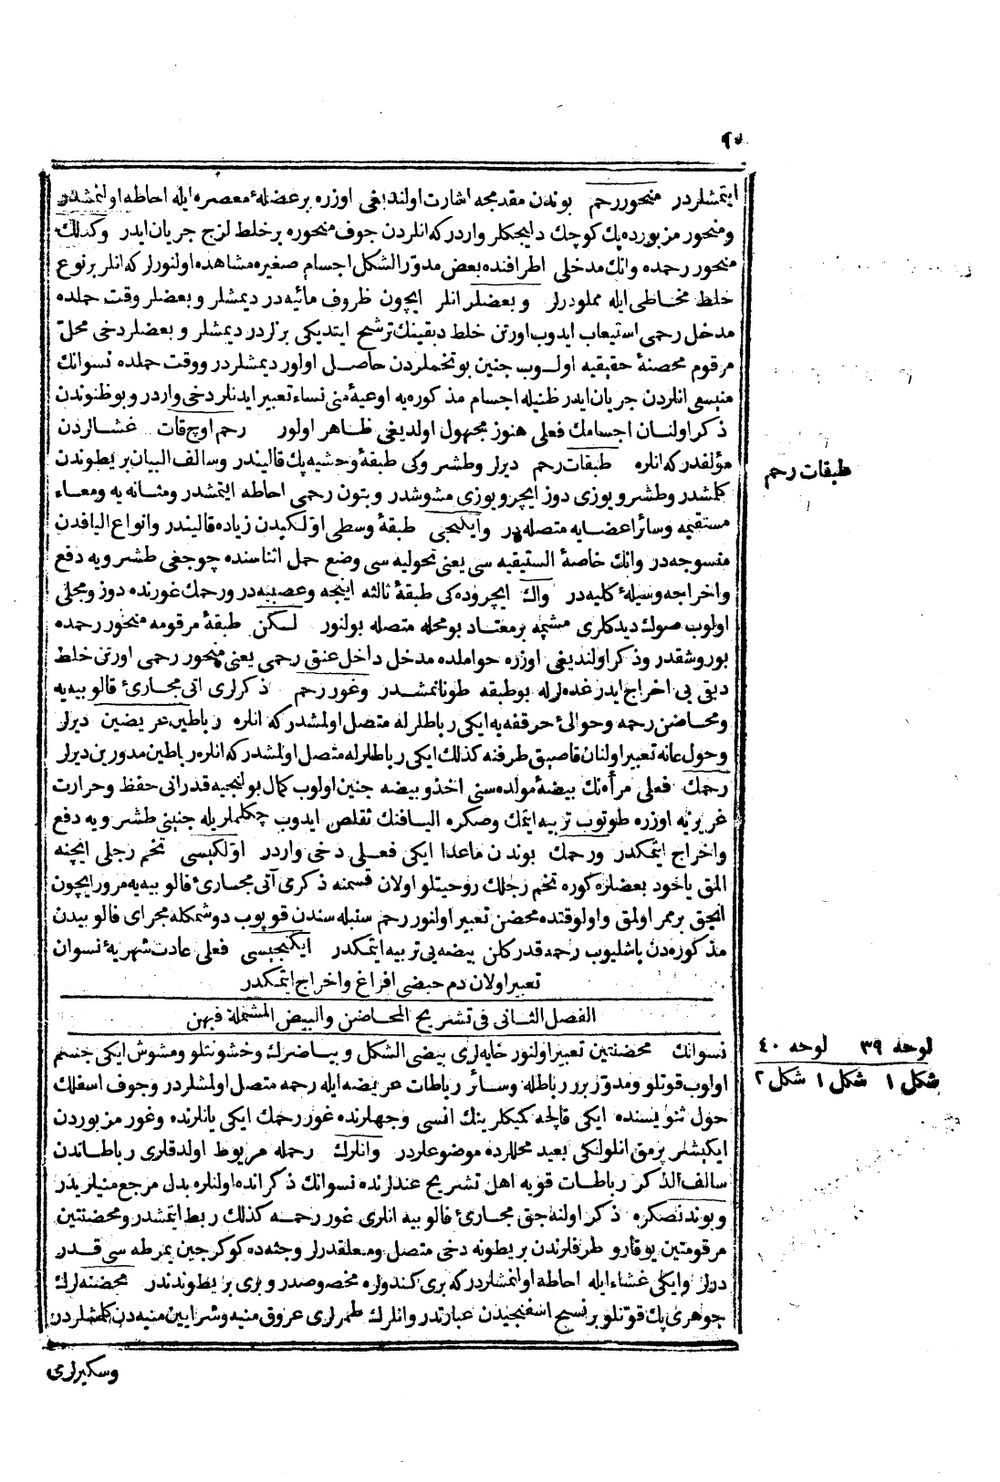 ٩٠
ايتمشلردر منحور رحم بوندن مقدمجه اشارت اولنديغى اوزره بر عضلهٔ معصره ايله احاطه اولنمشدر
ومنحور مزبورده پك كوچك دليجكلر واردر كه انلردن جوف منحوره بر خلط لزج جريان ايدر وكذلك
منحور رحمده وانك مدخلى اطرافنده بعض مدوّر الشكل اجسام صغيره مشاهده اولنورلر كه انلر بر نوع
خلط مخاطى ايله مملودرلر وبعضلر انلر ايچون ظروف مائيه در ديمشلر وبعضلر وقت حملده
مدخل رحمى استيعاب ايدوب اورتن خلط دبقينك ترشيح ايتديكى يرلردر ديمشلر وبعضلر دخى محلّ
مرقوم محصنهٔ حقيقيه اولوب جنين بو تخملردن حاصل اولور ديمشلردر ووقت حملده نسوانك
منيسى انلردن جريان ايدر ظنيله اجسام مذكوره يه اوعيهٔ منى نساء تعبير ايدنلر دخى واردر وبو ظنوندن
ذكر اولنان اجسامك فعلى هنوز مجهول اولديغى ظاهر اولور رحم اوچ قات غشالردن
مؤلفدر كه انلره طبقات رحم ديرلر وطشره كى طبقهٔ وحشيه پك قالیندر وسالف البيان بريطوندن
كلمشدر وطشره يوزى دوز ايچرو يوزى مشوشدر وبتون رحمى احاطه ايتمشدر ومثانه يه ومعاء
مستقيمه وسائر اعضايه متصله در وايكنجى طبقهٔ وسطى اوّلكيدن زياده قاليندر وانواع اليافدن
منسوجه در وانك خاصهٔ الستيقيه سى يعنى تحوليه سى وضع حمل اثناسنده چوجغى طشره يه دفع
واخراجه وسيلهٔ كليه در واك ايچروده كى طبقهٔ ثالثه اينجه وعصبيه در ورحمك غورنده دوز ومجلى
اولوب صوك ديدكلرى مشيمه بر معتاد بو محله متصله بولنور لكن طبقهٔ مرقومه منحور رحمده
بوروشقدر وذكر اولنديغى اوزره حواملده مدخل داخل عنق رحمى يعنى منحور رحمى اورتن خلط
دبقى يى اخراج ايدر غده لرله بو طبقه طونانمشدر وغور رحم ذكرلرى اتى مجارئ فالوبيه يه
ومحاضن رحمه وحوالئ حرقفه يه ايكى رباطلرله متصل اولمشدر كه انلره رباطين عريضين ديرلر
وحول عانه تعبير اولنان قاصيق طرفنه كذلك ايكى رباطلرله متصل اولمشدر كه انلره رباطين مدورين ديرلر
رحمك فعلى مرأه نك بيضهٔ مولده سنى اخذ وبيضه جنين اولوب كمال بولنجيه قدر انى حفظ وحرارت
غريزيه اوزره طوتوب تربيه ايتمك وصكره اليافنك تقلص ايدوب چكلملريله جنينى طشره يه دفع
واخراج ايتمكدر ورحمك بوندن ماعدا ايكى فعلى دخى واردر اوّلكيسى تخم رجلى ايچنه
المق ياخود بعضلره كوره تخم رجلك روحيتلو اولان قسمنه ذكرى آتى مجارئ فالوبيه يه مرور ايچون
انجق بر ممر اولمق واولوقتده محضن تعبير اولنور رحم سنبله سندن قوپوب دوشمكله مجراى فالوبيدن
مذكوره دن باشليوب رحمه قدر كلن بيضه يى تربيه ايتمكدر ايكنجيسى فعلى عادت شهريهٔ نسوان
تعبير اولان دم حيضى افراغ واخراج ايتمكدر
الفصل الثانى فى تشريح المحاضن والبيض المشتملة فيهن
نسوانك محضنتين تعبير اولنور خايه لرى بيضى الشكل وبياضرك وخشونتلو ومشوش ايكى جسم
اولوب قوتلو ومدوّر برر رباطله وسائر رباطات عريضه ايله رحمه متصل اولمشلردر وجوف اسفلك
حول ثنويسنده ايكى قالچه كميكلرينك انسى وجهلرنده غور رحمك ايكى يانلرنده وغور مزبوردن
ايكيشلر پرمق انلولكى بعيد محللرده موضوعلردر وانلرك رحمله مربوط اولدقلرى رباطاتدن
سالف الذكر رباطات قويه اهل تشريح عندلرنده نسوانك ذكرانده اولنلره بدل مرجع منيلريدر
وبوندنصكره ذكر اولنه جق مجارئ فالوبيه انلرى غور رحمه كذلك ربط ايتمشدر ومحضنتين
مرقومتين يوقارو طرفلرندن بريطونه دخى متصل ومعلقدرلر وجثه ده كوكرجين يمرطه سى قدر
درلر وايكى غشاء ايله احاطه اولنمشلردر كه برى كندولره مخصوصدر وبرى بريطوندندر محضنه لرك
جوهرى پك قوتلو بر نسيج اسفنجيدن عبارتدر وانلرك طمرلرى عروق منيه وشرايين منيه دن كلمشلردر
وسكيرلرى
طبقات رحم
لوحه ٣٩ لوحه ٤٠
شكل ١ شكل ١ شكل ٢